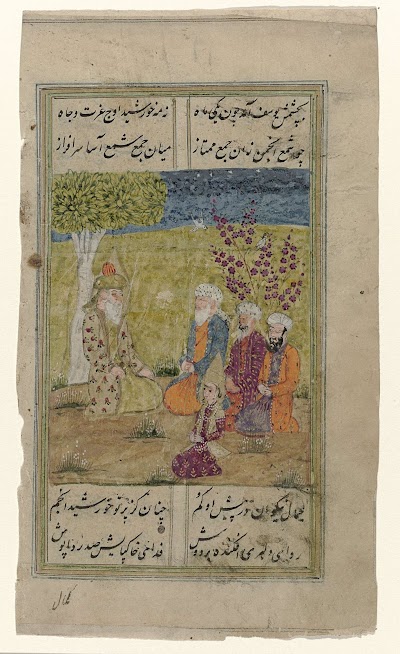 بچشمش یوسف آمد چون یکی ماه نه مه خورشید اوج عزت و جاه
چو شمع انجمن زان جمع ممتاز میان جمع شمع آسا سرافراز
جمال نیکوان در پیش او گم چنان کز پرتو خورشید انجم
ردای دلبری افکنده بر دوش فدای خاک پایش صد رداپوش